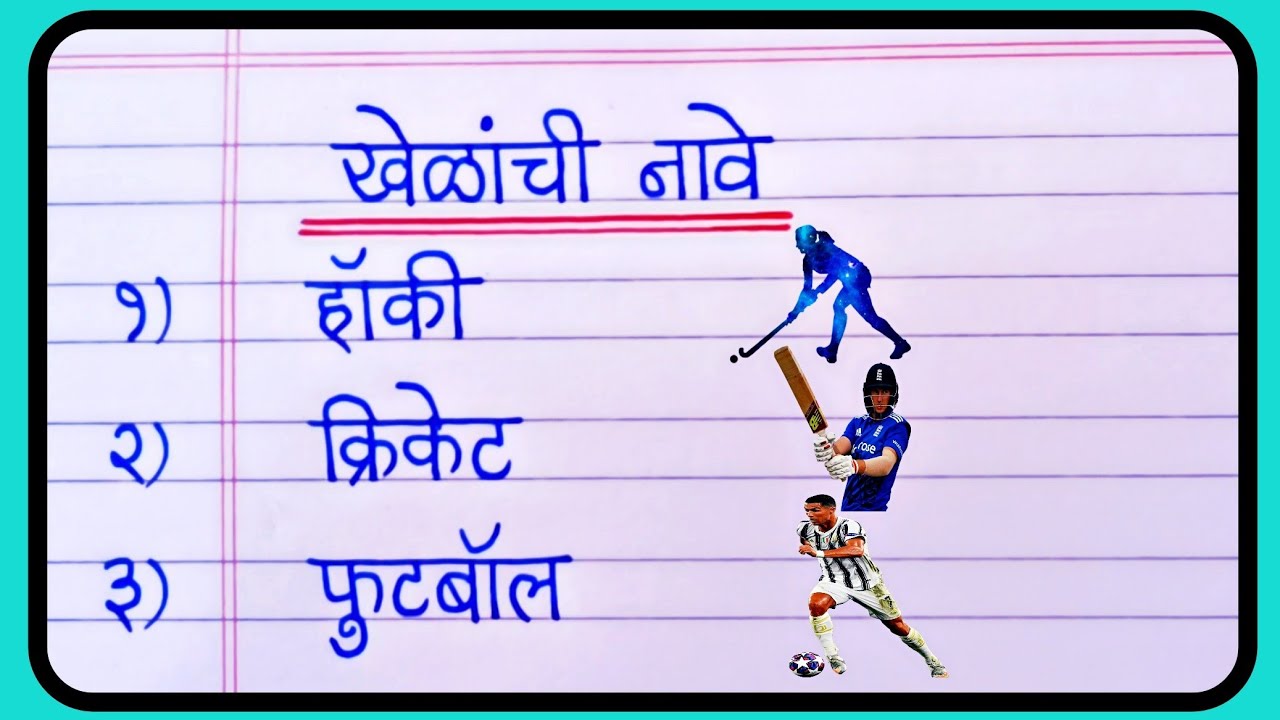 खेळांची नावे
१) हॉकी
२) क्रिकेट
rose
३) फुटबॉल